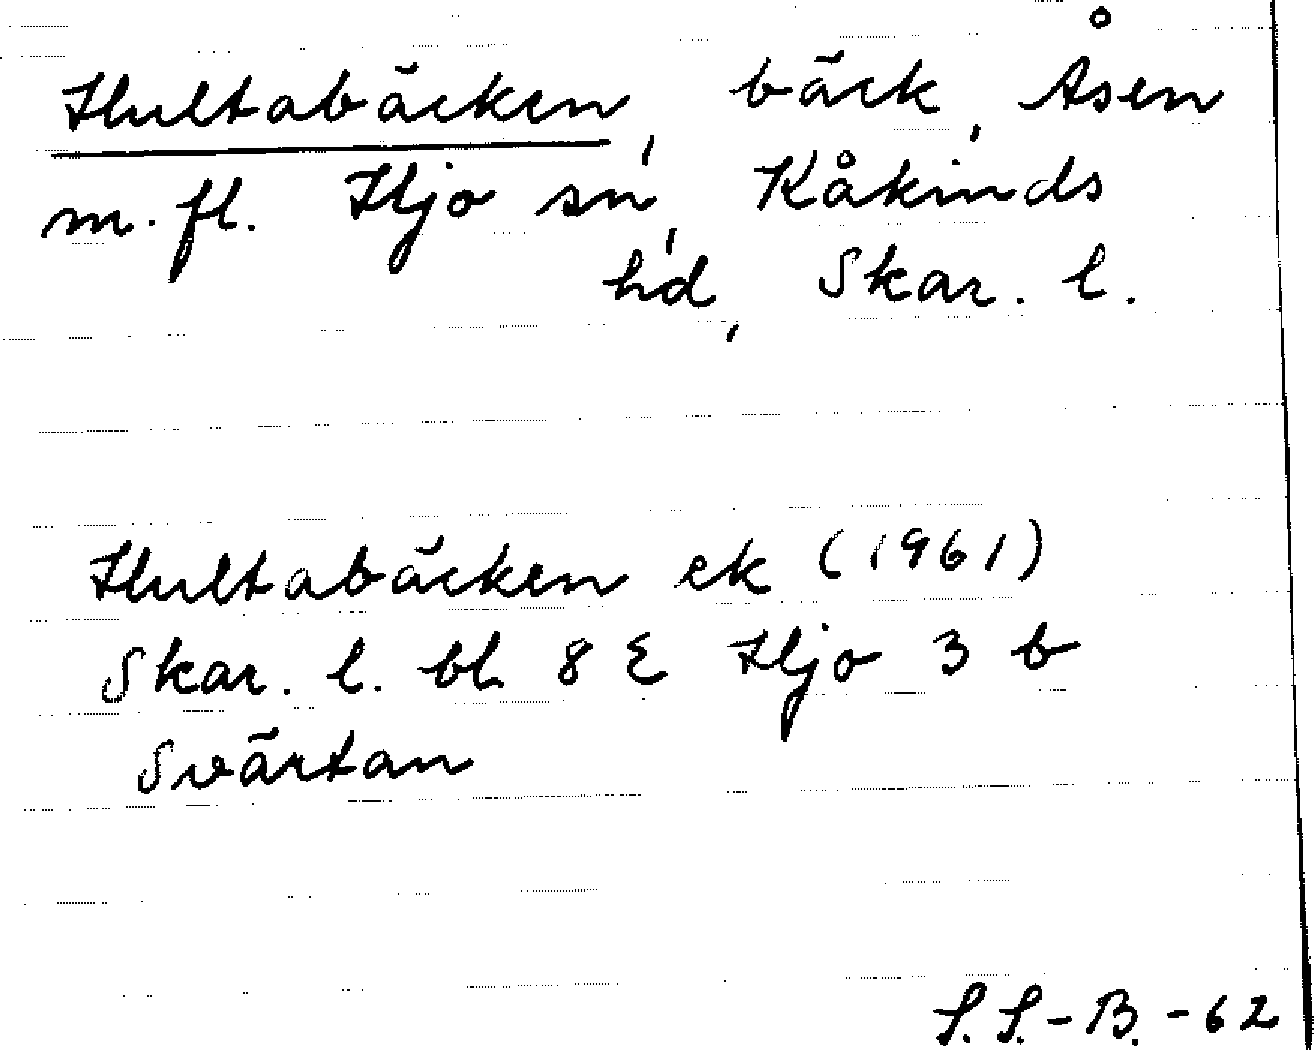 Hultabäcken, bäck, Åsen
m. fl. Hjo sn, Kåkinds
hd, Skar. l.
Hultabäcken ek (1961)
Skar. l. bl. 8 E Hjo 3 b
Svärtan
S. S.-B. -62